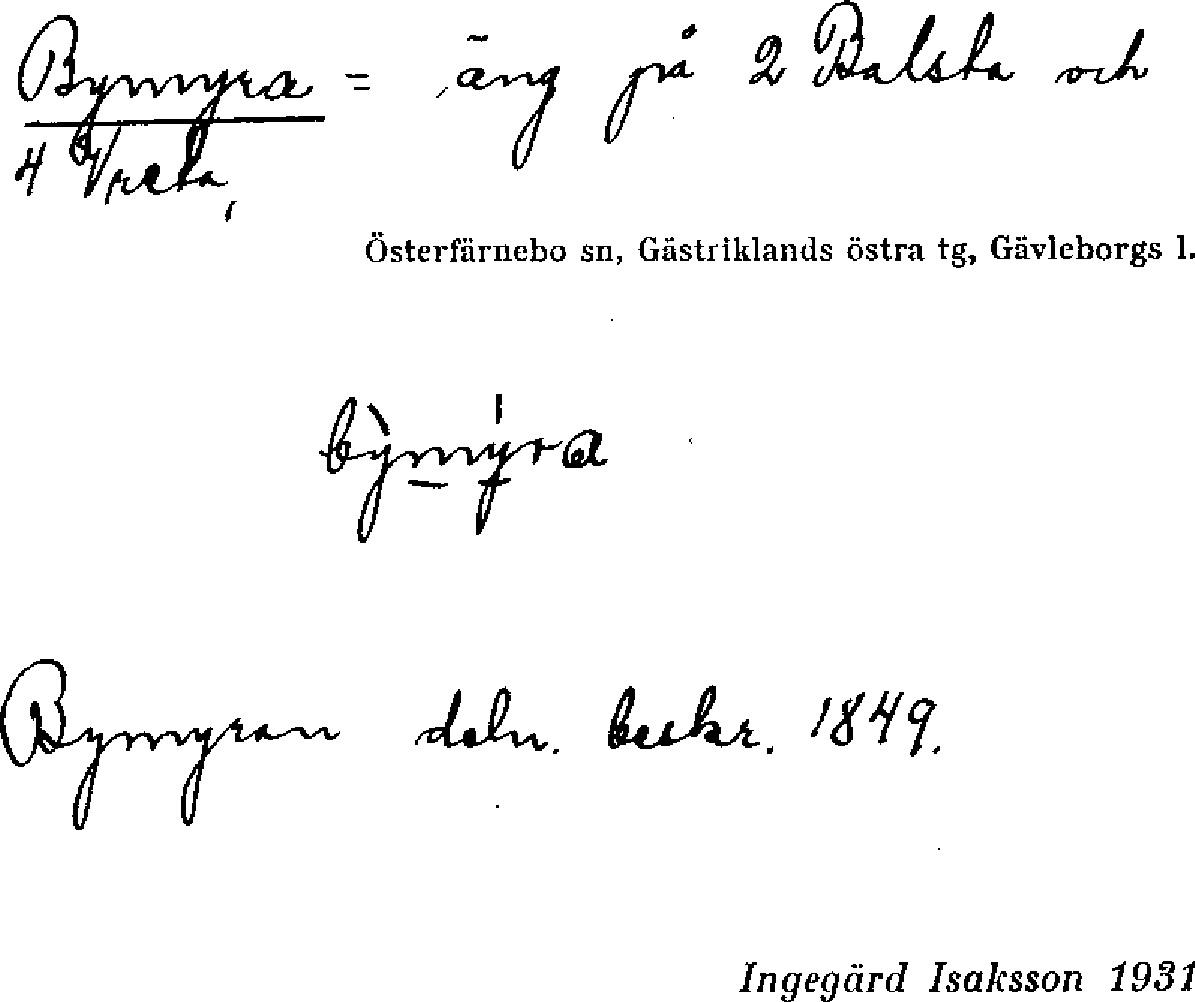 Bymyra = äng på 2 Balsta och
4 Vreta,
Österfärnebo sn, Gästriklands östra tg, Gävleborgs l.
bỳmýra
Bymyran deln. beskr. 1849.
Ingegärd Isaksson 1931